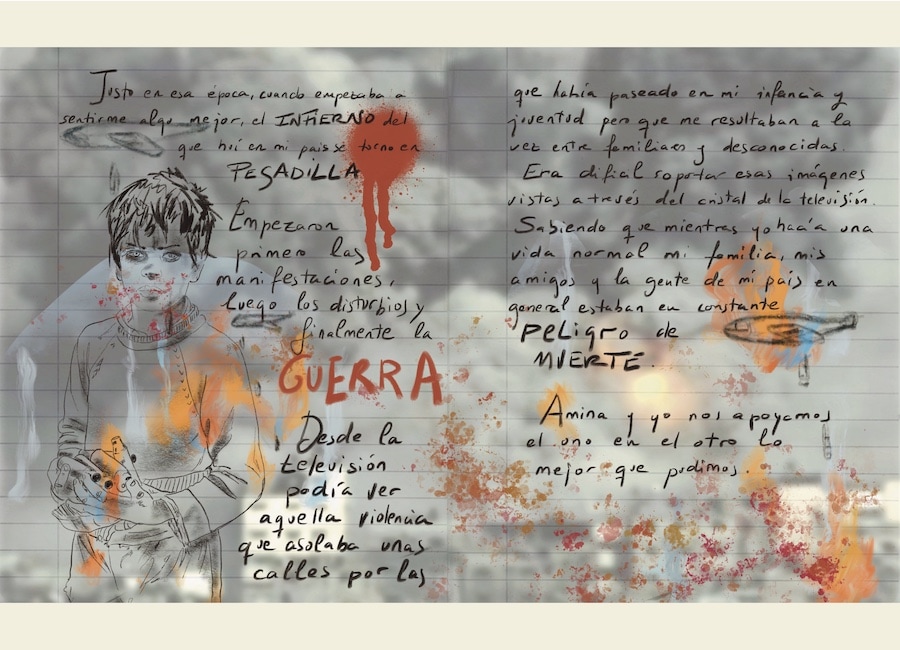 Justo en esa época, cuando empezaba a
sentirme algo mejor, el INFIERNO del
que huí en mi país se torno en
PESADILLA
Empezaron
primero las
manifestaciones,
luego los disturbios y
finalmente la
GUERRA
Desde la
televisión
podía ver
aquella violencia
que asolaba unas
calles por las
que había paseado en mi infancia y
juventud pero que me resultaban a la
vez entre familiares y desconocidas.
Era difial soportar esas imágenes
vistas a través del cristal de la televisión.
Sabiendo que mientras yo hacía una
vida normal mi familia, mis
amigos y la gente de mi país en
general estaban en constante
PELIGRO de
MUERTE.
Amina y yo nos apoyamos
el uno en el otro lo
mejor que pudimos.